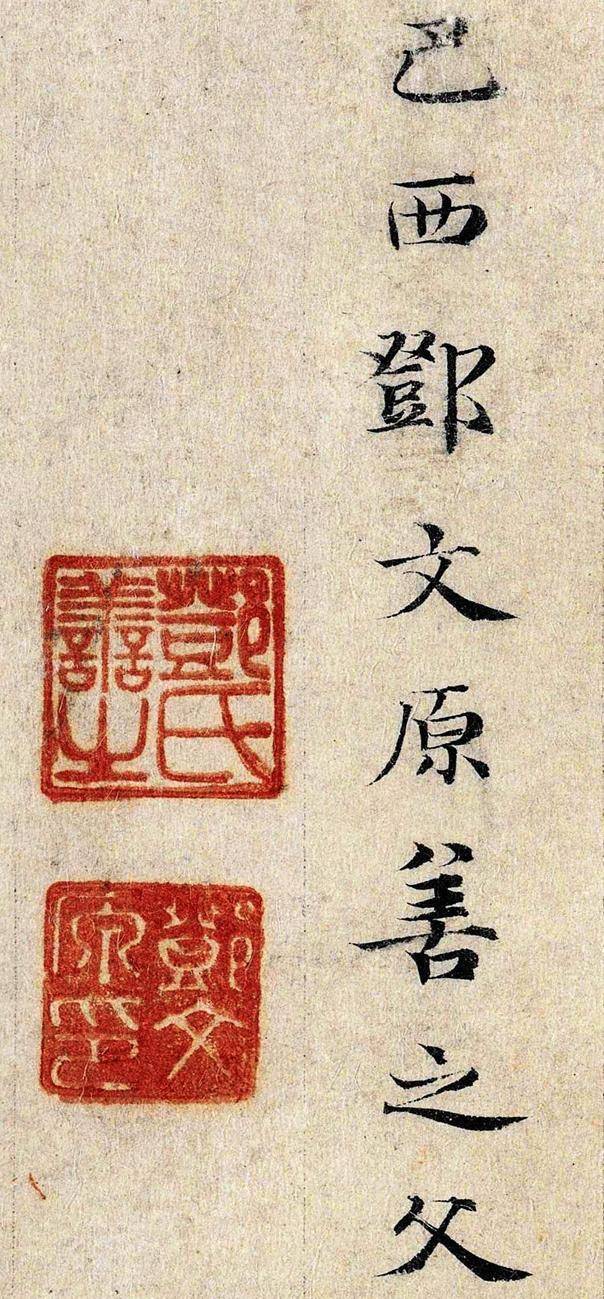 巴西鄧文原善之父
鄧氏譱之
鄧文原印